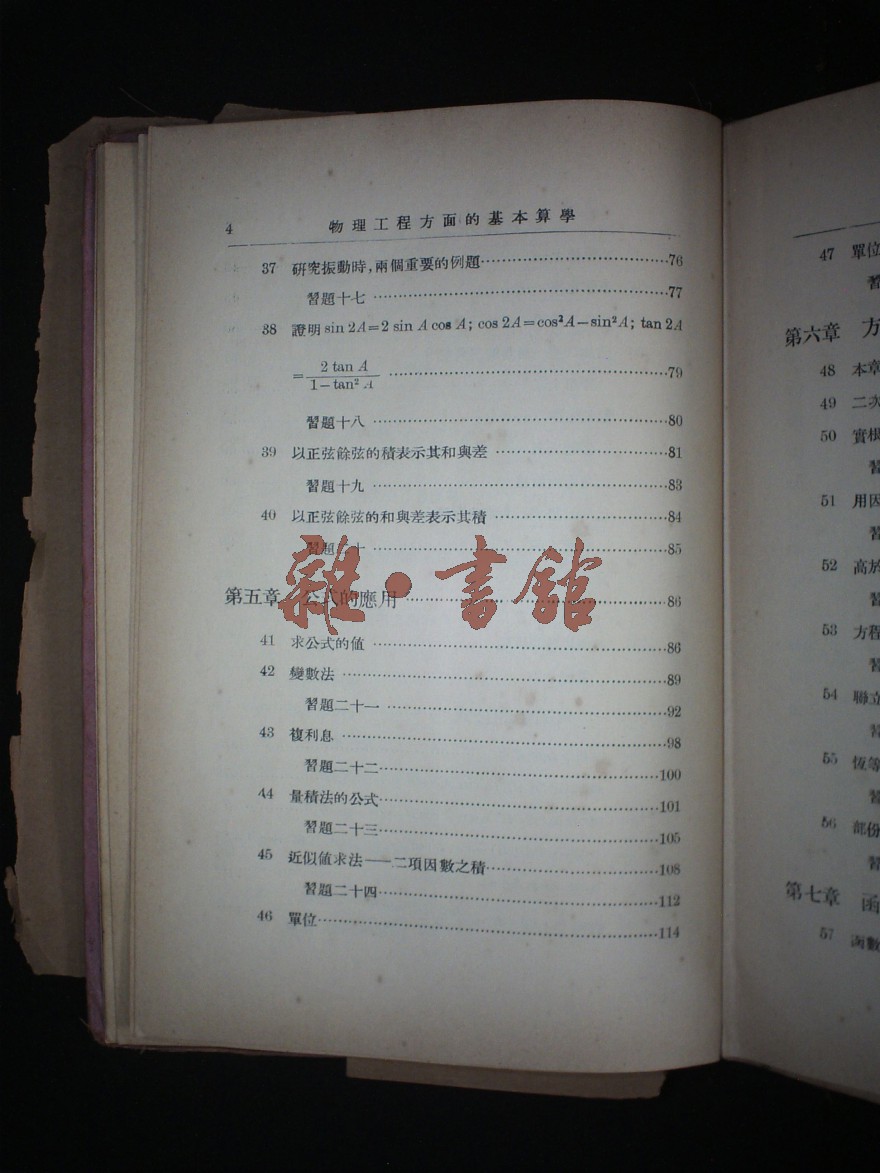 4 物理工程方面的基本算學
37 硏究振動時,兩個重要的例題 76
習題十七 77
38 證明 sin 2A=2 sin A cos A; cos 2A=cos²A−sin²A; tan 2A
= 2 tan A / 1−tan² A 79
習題十八 80
39 以正弦餘弦的積表示其和與差 81
習題十九 83
40 以正弦餘弦的和與差表示其積 84
習題二十 85
第五章 公式的應用 86
41 求公式的値 86
42 變數法 89
習題二十一 92
43 複利息 98
習題二十二 100
44 量積法的公式 101
習題二十三 105
45 近似値求法——二項因數之積 108
習題二十四 112
46 單位 114
雜·書館
47 單位
習
第六章 方
48 本章
49 二次
50 實根
習
51 用因
習
52 高於
習
53 方程
習
54 聯立
習
55 恆等
習
56 部份
習
第七章 函
57 函數